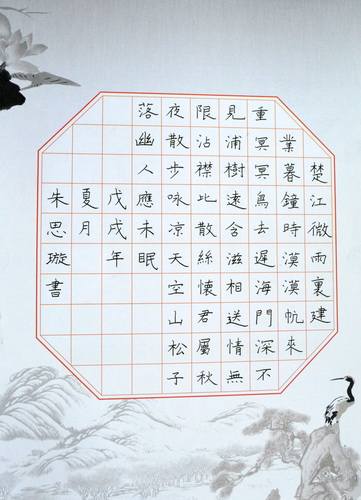 楚江微雨裏建
業暮鐘時漠漠帆來
重冥冥鳥去遲海門深不
見浦樹遠含滋相送情無
限沾襟比散絲懷君屬秋
夜散步咏凉天空山松子
落幽人應未眠
戊戌年
夏月
朱思璇書